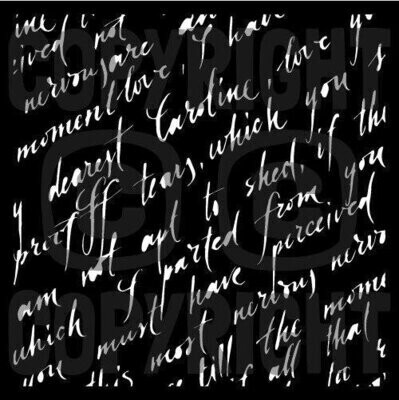 COPYRIGHT
ived not
nervous are love, I have
moment love
y dearest Caroline, love
proof tears, which you s
not apt to shed, if the
I parted from you
am which must have perceived
you this most nervous nervo
till the mome
all that
COPYRIGHT